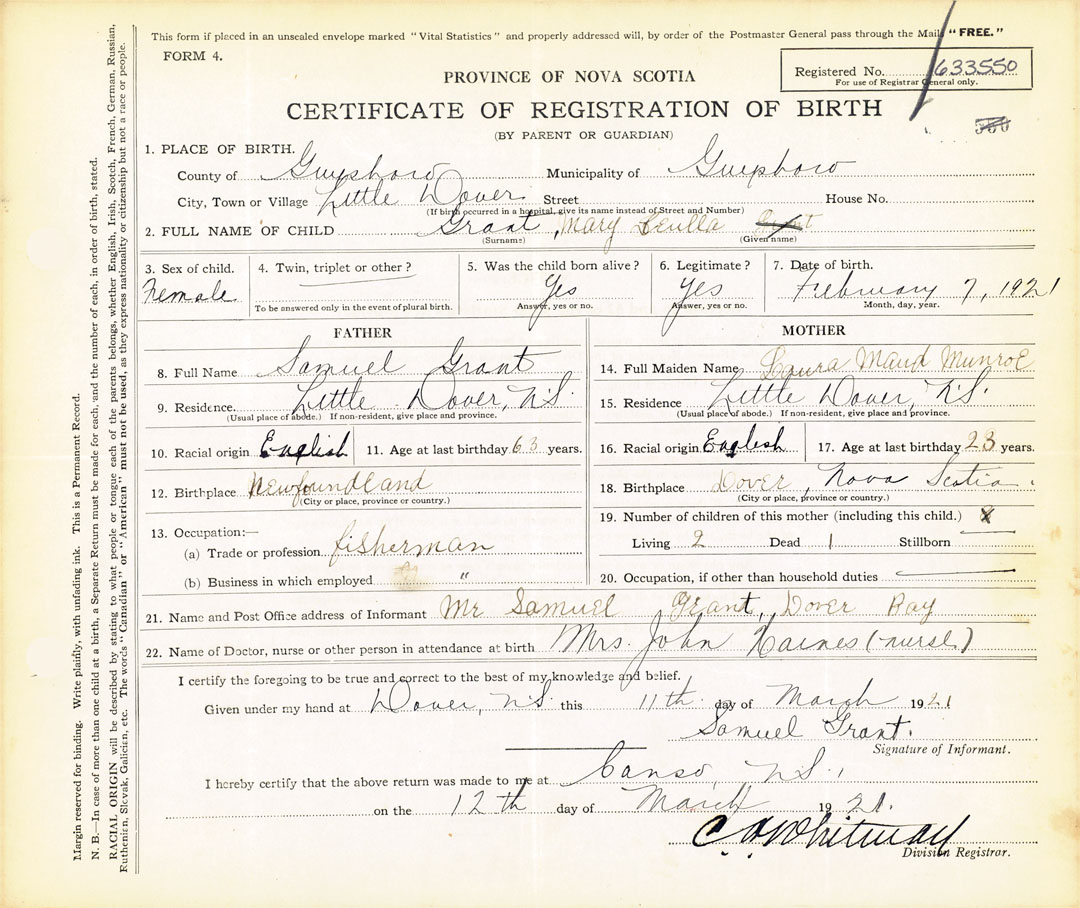 This form if placed in an unsealed envelope marked "Vital Statistics" and properly addressed will, by order of the Postmaster General pass through the Mail "FREE."
FORM 4.
Registered No. 633550
For use of Registrar General only.
PROVINCE OF NOVA SCOTIA
CERTIFICATE OF REGISTRATION OF BIRTH
(BY PARENT OR GUARDIAN)
1. PLACE OF BIRTH.
County of Guysboro Municipality of Guysboro
City, Town or Village Little Dover Street House No.
(If birth occurred in a hospital, give its name instead of Street and Number)
2. FULL NAME OF CHILD Grant, Mary Leulla
(Surname) (Given name)
3. Sex of child. 4. Twin, triplet or other? 5. Was the child born alive? 6. Legitimate? 7. Date of birth.
Female Yes Yes February 7, 1921
To be answered only in the event of plural birth. Answer, yes or no. Answer, yes or no. Month, day, year.
FATHER
8. Full Name Samuel Grant
9. Residence. Little Dover, N.S.
(Usual place of abode.) If non-resident, give place and province.
10. Racial origin English 11. Age at last birthday 63 years.
12. Birthplace Newfoundland
(City or place, province or country.)
13. Occupation:—
(a) Trade or profession fisherman
(b) Business in which employed "
MOTHER
14. Full Maiden Name Laura Maud Munroe
15. Residence Little Dover, N.S.
(Usual place of abode.) If non-resident, give place and province.
16. Racial origin English 17. Age at last birthday 23 years.
18. Birthplace Dover, Nova Scotia.
(City or place, province or country.)
19. Number of children of this mother (including this child.)
Living 2 Dead 1 Stillborn
20. Occupation, if other than household duties
21. Name and Post Office address of Informant Mr Samuel Grant, Dover Bay
22. Name of Doctor, nurse or other person in attendance at birth Mrs. John Haines (nurse)
I certify the foregoing to be true and correct to the best of my knowledge and belief.
Given under my hand at Dover, N.S. this 11th day of March 1921
Samuel Grant.
Signature of Informant.
I hereby certify that the above return was made to me at Canso, N.S.
on the 12th day of March 1921.
C. A. Whitman
Division Registrar.
Margin reserved for binding. Write plainly, with unfading ink. This is a Permanent Record.
N. B.—In case of more than one child at a birth, a Separate Return must be made for each, and the number of each, in order of birth, stated.
RACIAL ORIGIN will be described by stating to what people or tongue each of the parents belongs, whether English, Irish, Scotch, French, German, Russian,
Ruthenien, Slovak, Galician, etc. The words "Canadian" or "American" must not be used, as they express nationality or citizenship but not a race or people.